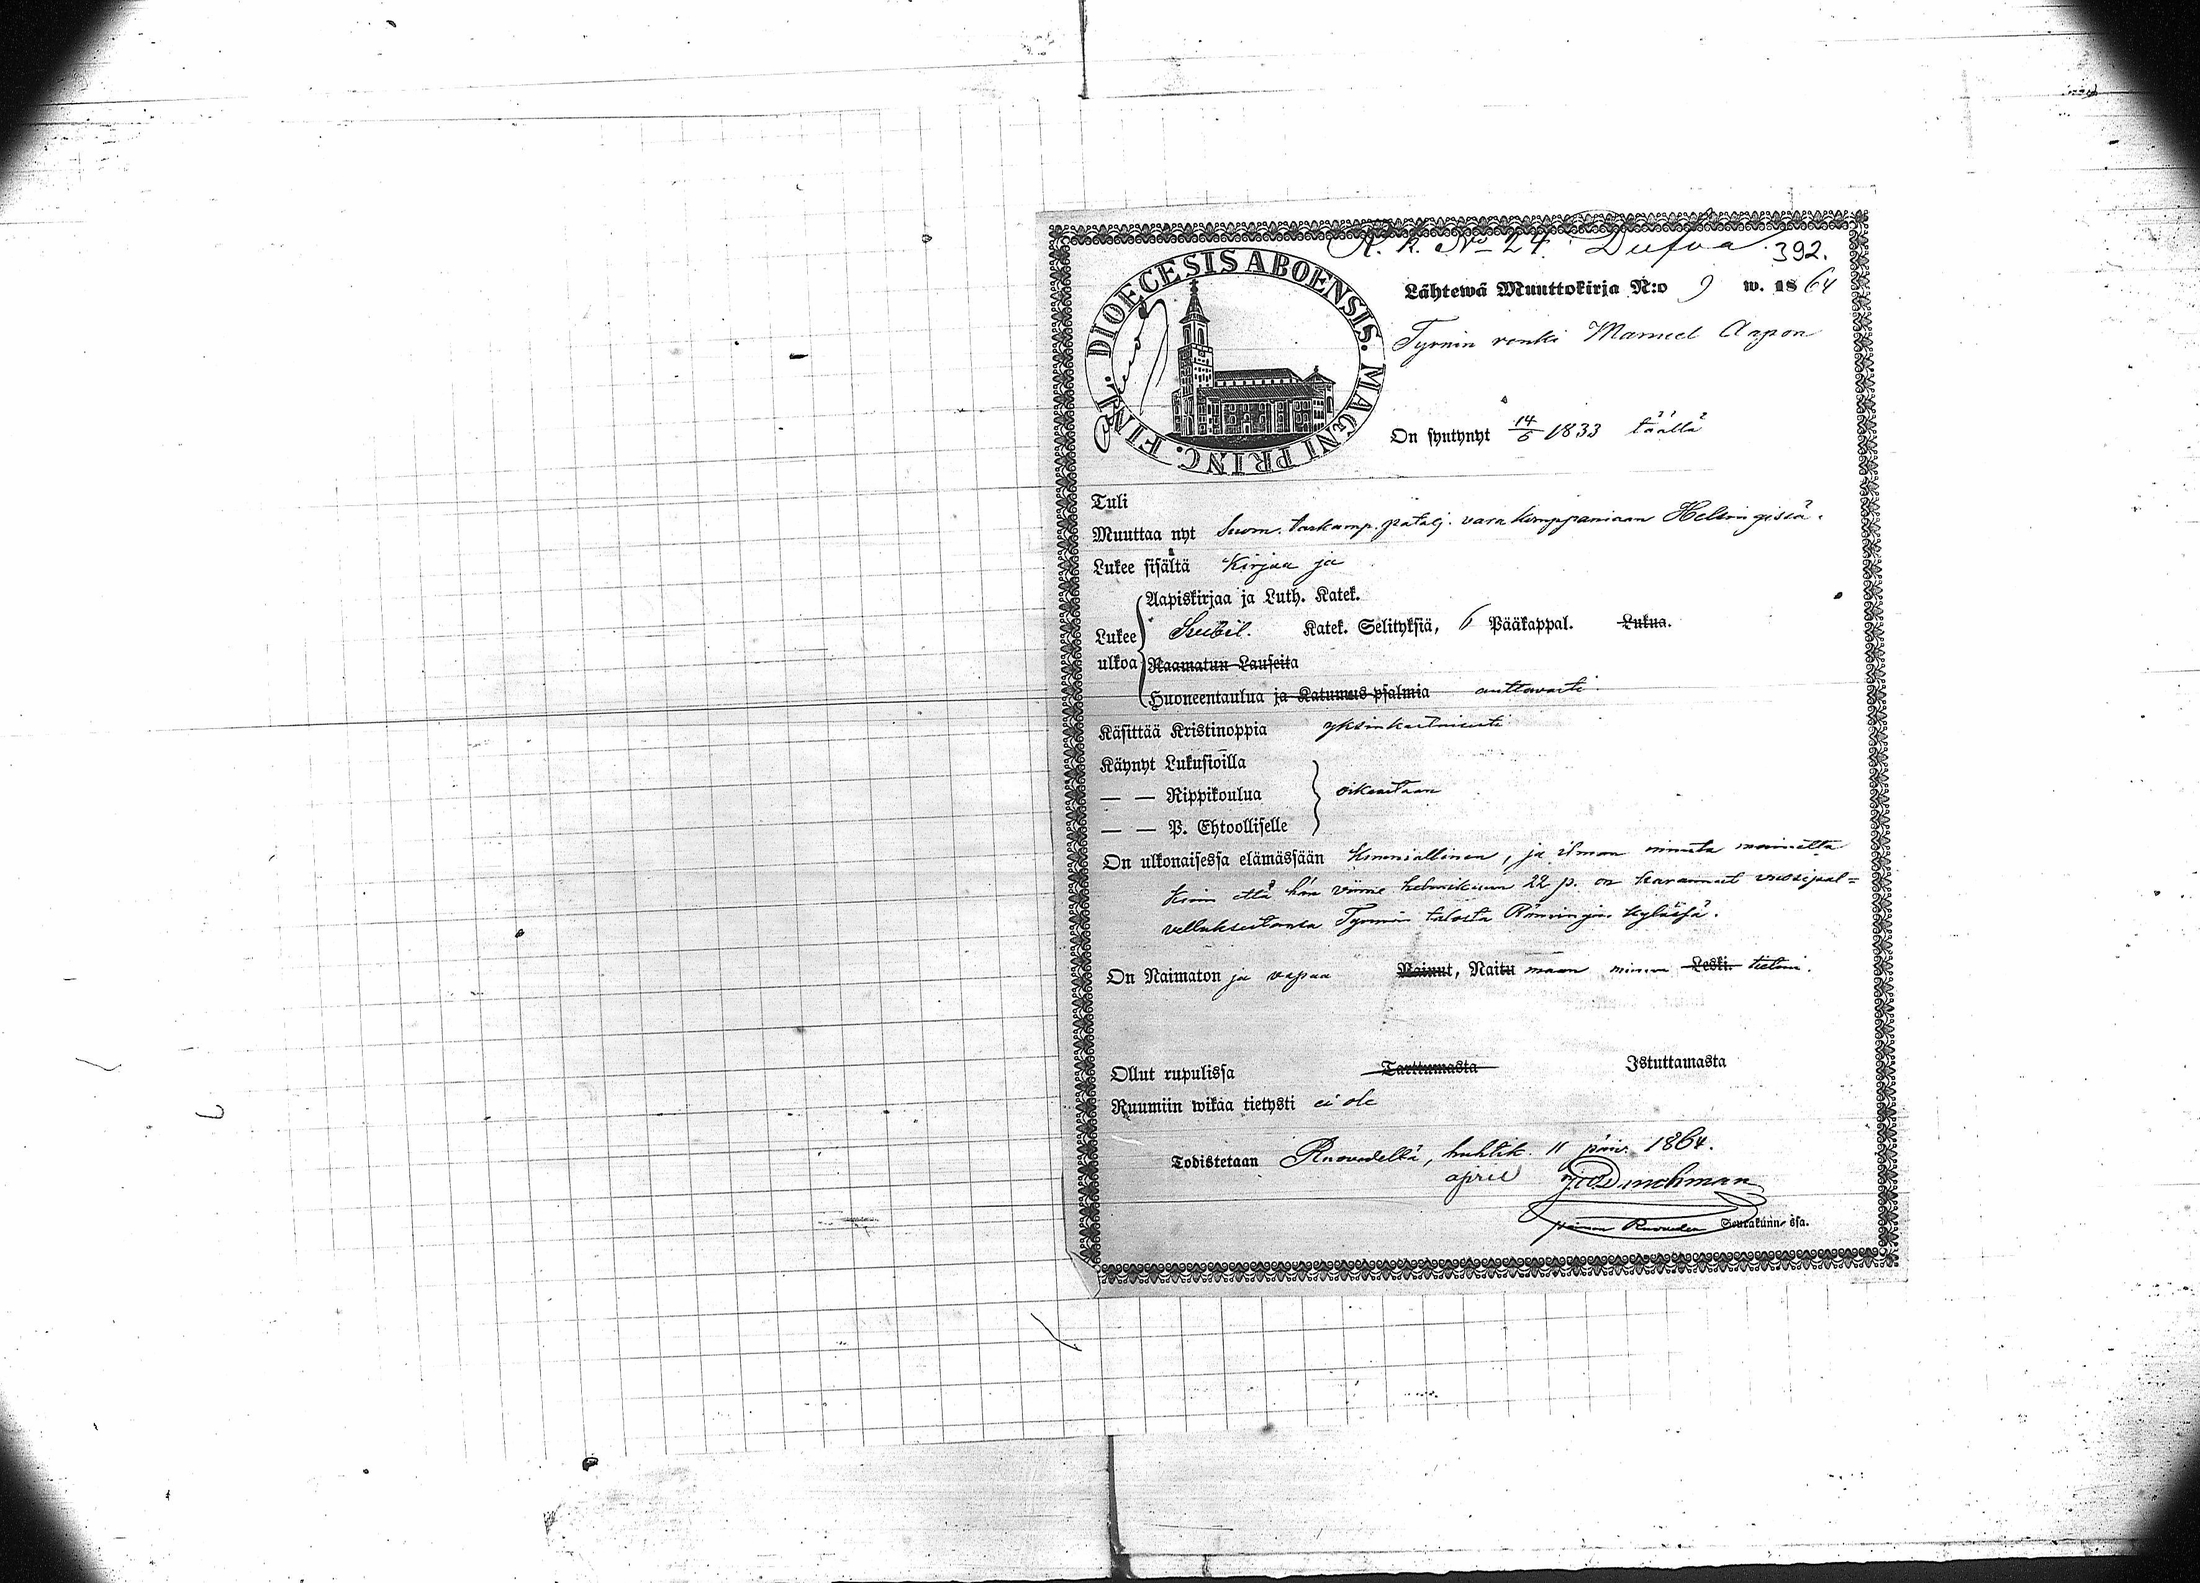 R. k. No 24. Dufva 392.
DIOECESIS ABOENSIS. MAGNI PRINC. FINL.
Lähtewä Muuttokirja N:o 9 w. 1864
Tyrnin renki Manuel Aapon
On syntynyt 14/6 1833 täällä
Tuli
Muuttaa nyt Suom. tarkamp. patalj. varakomppaniaan Helsingissä.
Lukee sisältä Kirjaa ja
Aapiskirjaa ja Luth. Katek.
Lukee ulkoa Svebil. Katek. Selityksiä, 6 Pääkappal. Lukua.
Raamatun Lauseita
Huoneentaulua ja Katumus-psalmia auttavasti.
Käsittää Kristinoppia yksinkertaisesti
Käynyt Lukusioilla
— — Rippikoulua oikeastaan
— — P. Ehtoolliselle
On ulkonaisessa elämässään kunniallinen, ja ilman muuta mainetta
kuin että hän viime helmikuun 22 p. on karannut vuosipal=
velluksestansa Tyrnin talosta kylässä.
On Naimaton ja vapaa Nainut, Naitu maan minun Leski. tietäni.
Ollut rupulissa Tarttumasta Istuttamasta
Ruumiin wikaa tietysti ei ole
Todistetaan Ruovedellä, huhtik. 11 päiv. 1864.
april
Ruoveden Seurakunn-ssa.